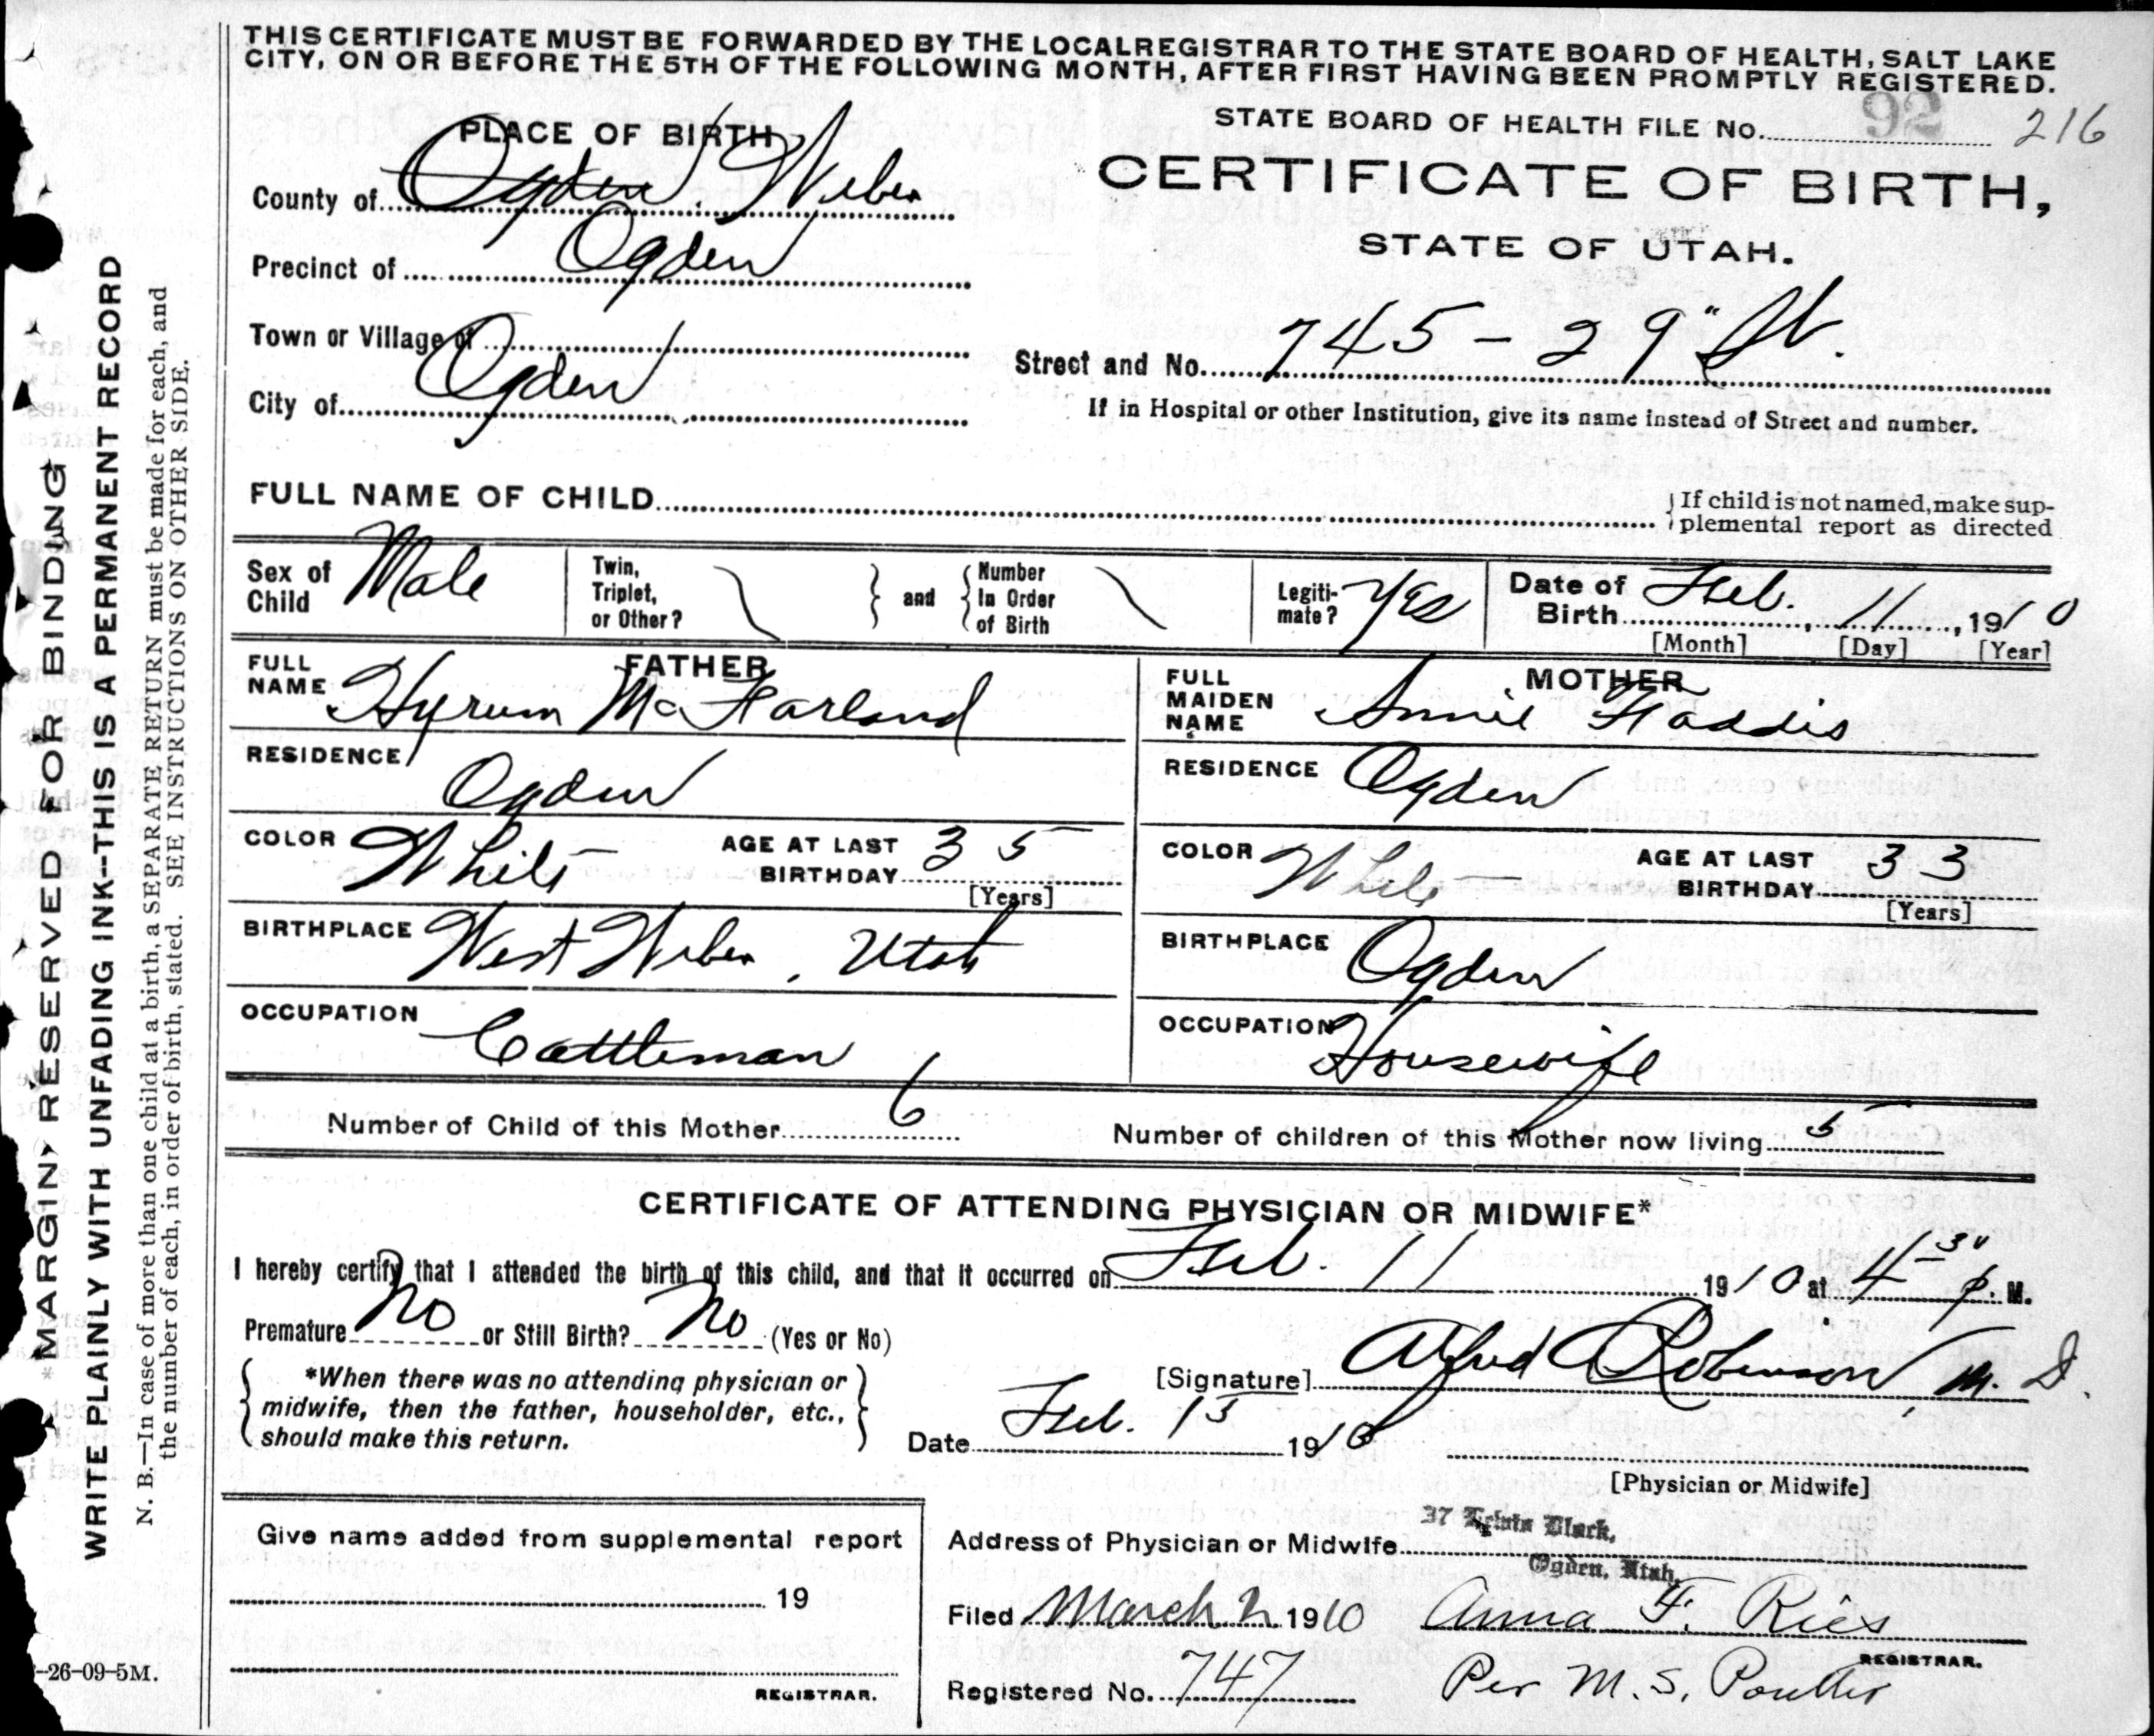 THIS CERTIFICATE MUST BE FORWARDED BY THE LOCAL REGISTRAR TO THE STATE BOARD OF HEALTH, SALT LAKE
CITY, ON OR BEFORE THE 5TH OF THE FOLLOWING MONTH, AFTER FIRST HAVING BEEN PROMPTLY REGISTERED.
STATE BOARD OF HEALTH FILE No. 92 216
PLACE OF BIRTH
CERTIFICATE OF BIRTH,
STATE OF UTAH.
County of Ogden Weber
Precinct of Ogden
Town or Village of
City of Ogden
Street and No. 745 - 29" St.
If in Hospital or other Institution, give its name instead of Street and number.
FULL NAME OF CHILD
If child is not named, make sup-
plemental report as directed
Sex of Child Male
Twin, Triplet, or Other?
and Number In Order of Birth
Legiti-mate? Yes
Date of Birth Feb. 11, 1910
[Month] [Day] [Year]
FATHER
FULL NAME Hyrum McFarland
RESIDENCE Ogden
COLOR White AGE AT LAST BIRTHDAY 35
[Years]
BIRTHPLACE West Weber, Utah
OCCUPATION Cattleman
MOTHER
FULL MAIDEN NAME Annie Faddis
RESIDENCE Ogden
COLOR White AGE AT LAST BIRTHDAY 33
[Years]
BIRTHPLACE Ogden
OCCUPATION Housewife
Number of Child of this Mother 6 Number of children of this Mother now living 5
CERTIFICATE OF ATTENDING PHYSICIAN OR MIDWIFE*
I hereby certify that I attended the birth of this child, and that it occurred on Feb. 11 1910 at 4 30 p. M.
Premature No or Still Birth? No (Yes or No)
*When there was no attending physician or
midwife, then the father, householder, etc.,
should make this return.
[Signature] Alfred Robinson, M. D.
Date Feb. 15 1910
[Physician or Midwife]
Give name added from supplemental report
19
REGISTRAR.
Address of Physician or Midwife 37
Ogden, Utah.
Filed March 2 1910 Anna F. Ries
REGISTRAR.
Registered No. 747 Per M. S. Poulter
*MARGIN RESERVED FOR BINDING
WRITE PLAINLY WITH UNFADING INK--THIS IS A PERMANENT RECORD
N. B.—In case of more than one child at a birth, a SEPARATE RETURN must be made for each, and
the number of each, in order of birth, stated. SEE INSTRUCTIONS ON OTHER SIDE.
-26-09-5M.